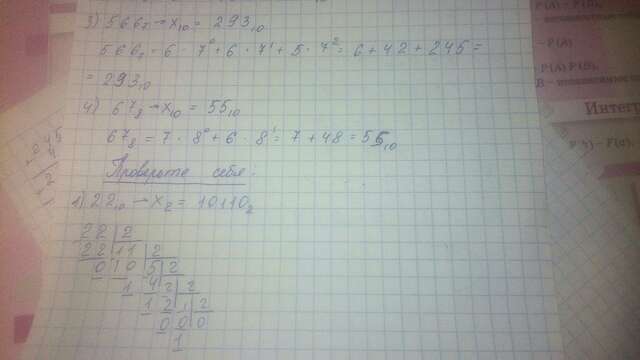 3) 566₇ → x₁₀ = 293₁₀
566₇ = 6 · 7⁰ + 6 · 7¹ + 5 · 7² = 6 + 42 + 245 =
= 293₁₀
4) 67₈ → x₁₀ = 55₁₀
67₈ = 7 · 8⁰ + 6 · 8¹ = 7 + 48 = 55₁₀
Проверьте себя:
1) 22₁₀ → x₂ = 10110₂
22 2
22 11 2
0 10 5 2
1 4 2 2
1 2 1 2
0 0 0
1
P(A)
P(A) P(B),
Интег